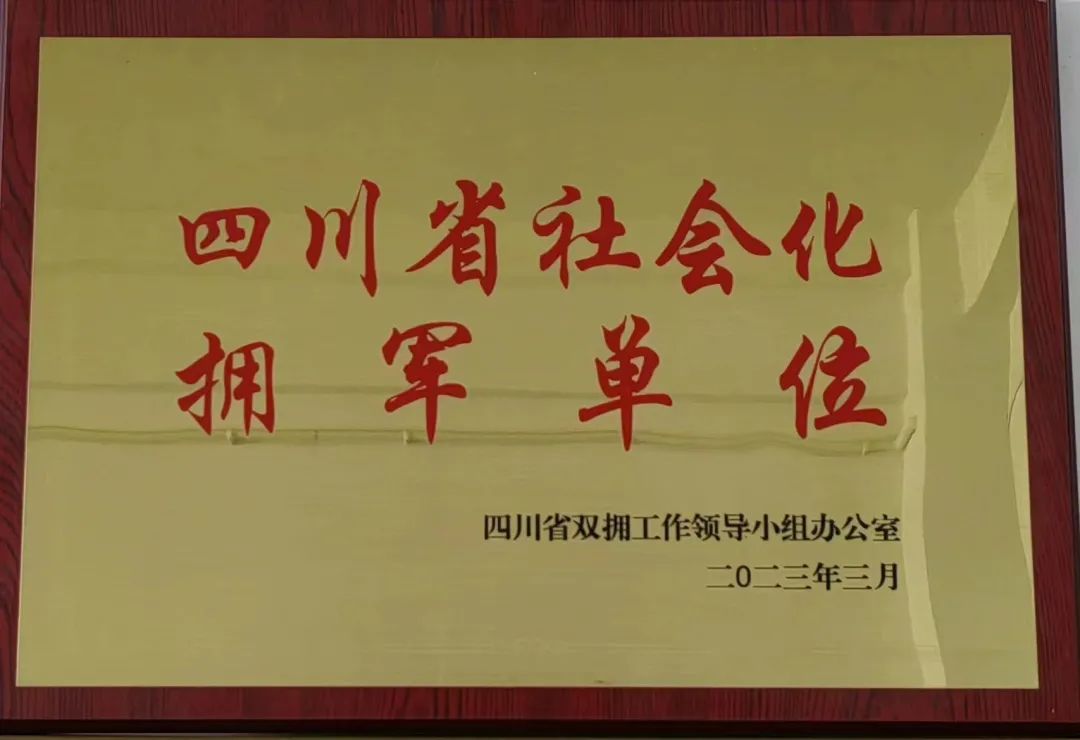 四川省社会化
拥军单位
四川省双拥工作领导小组办公室
二0二三年三月